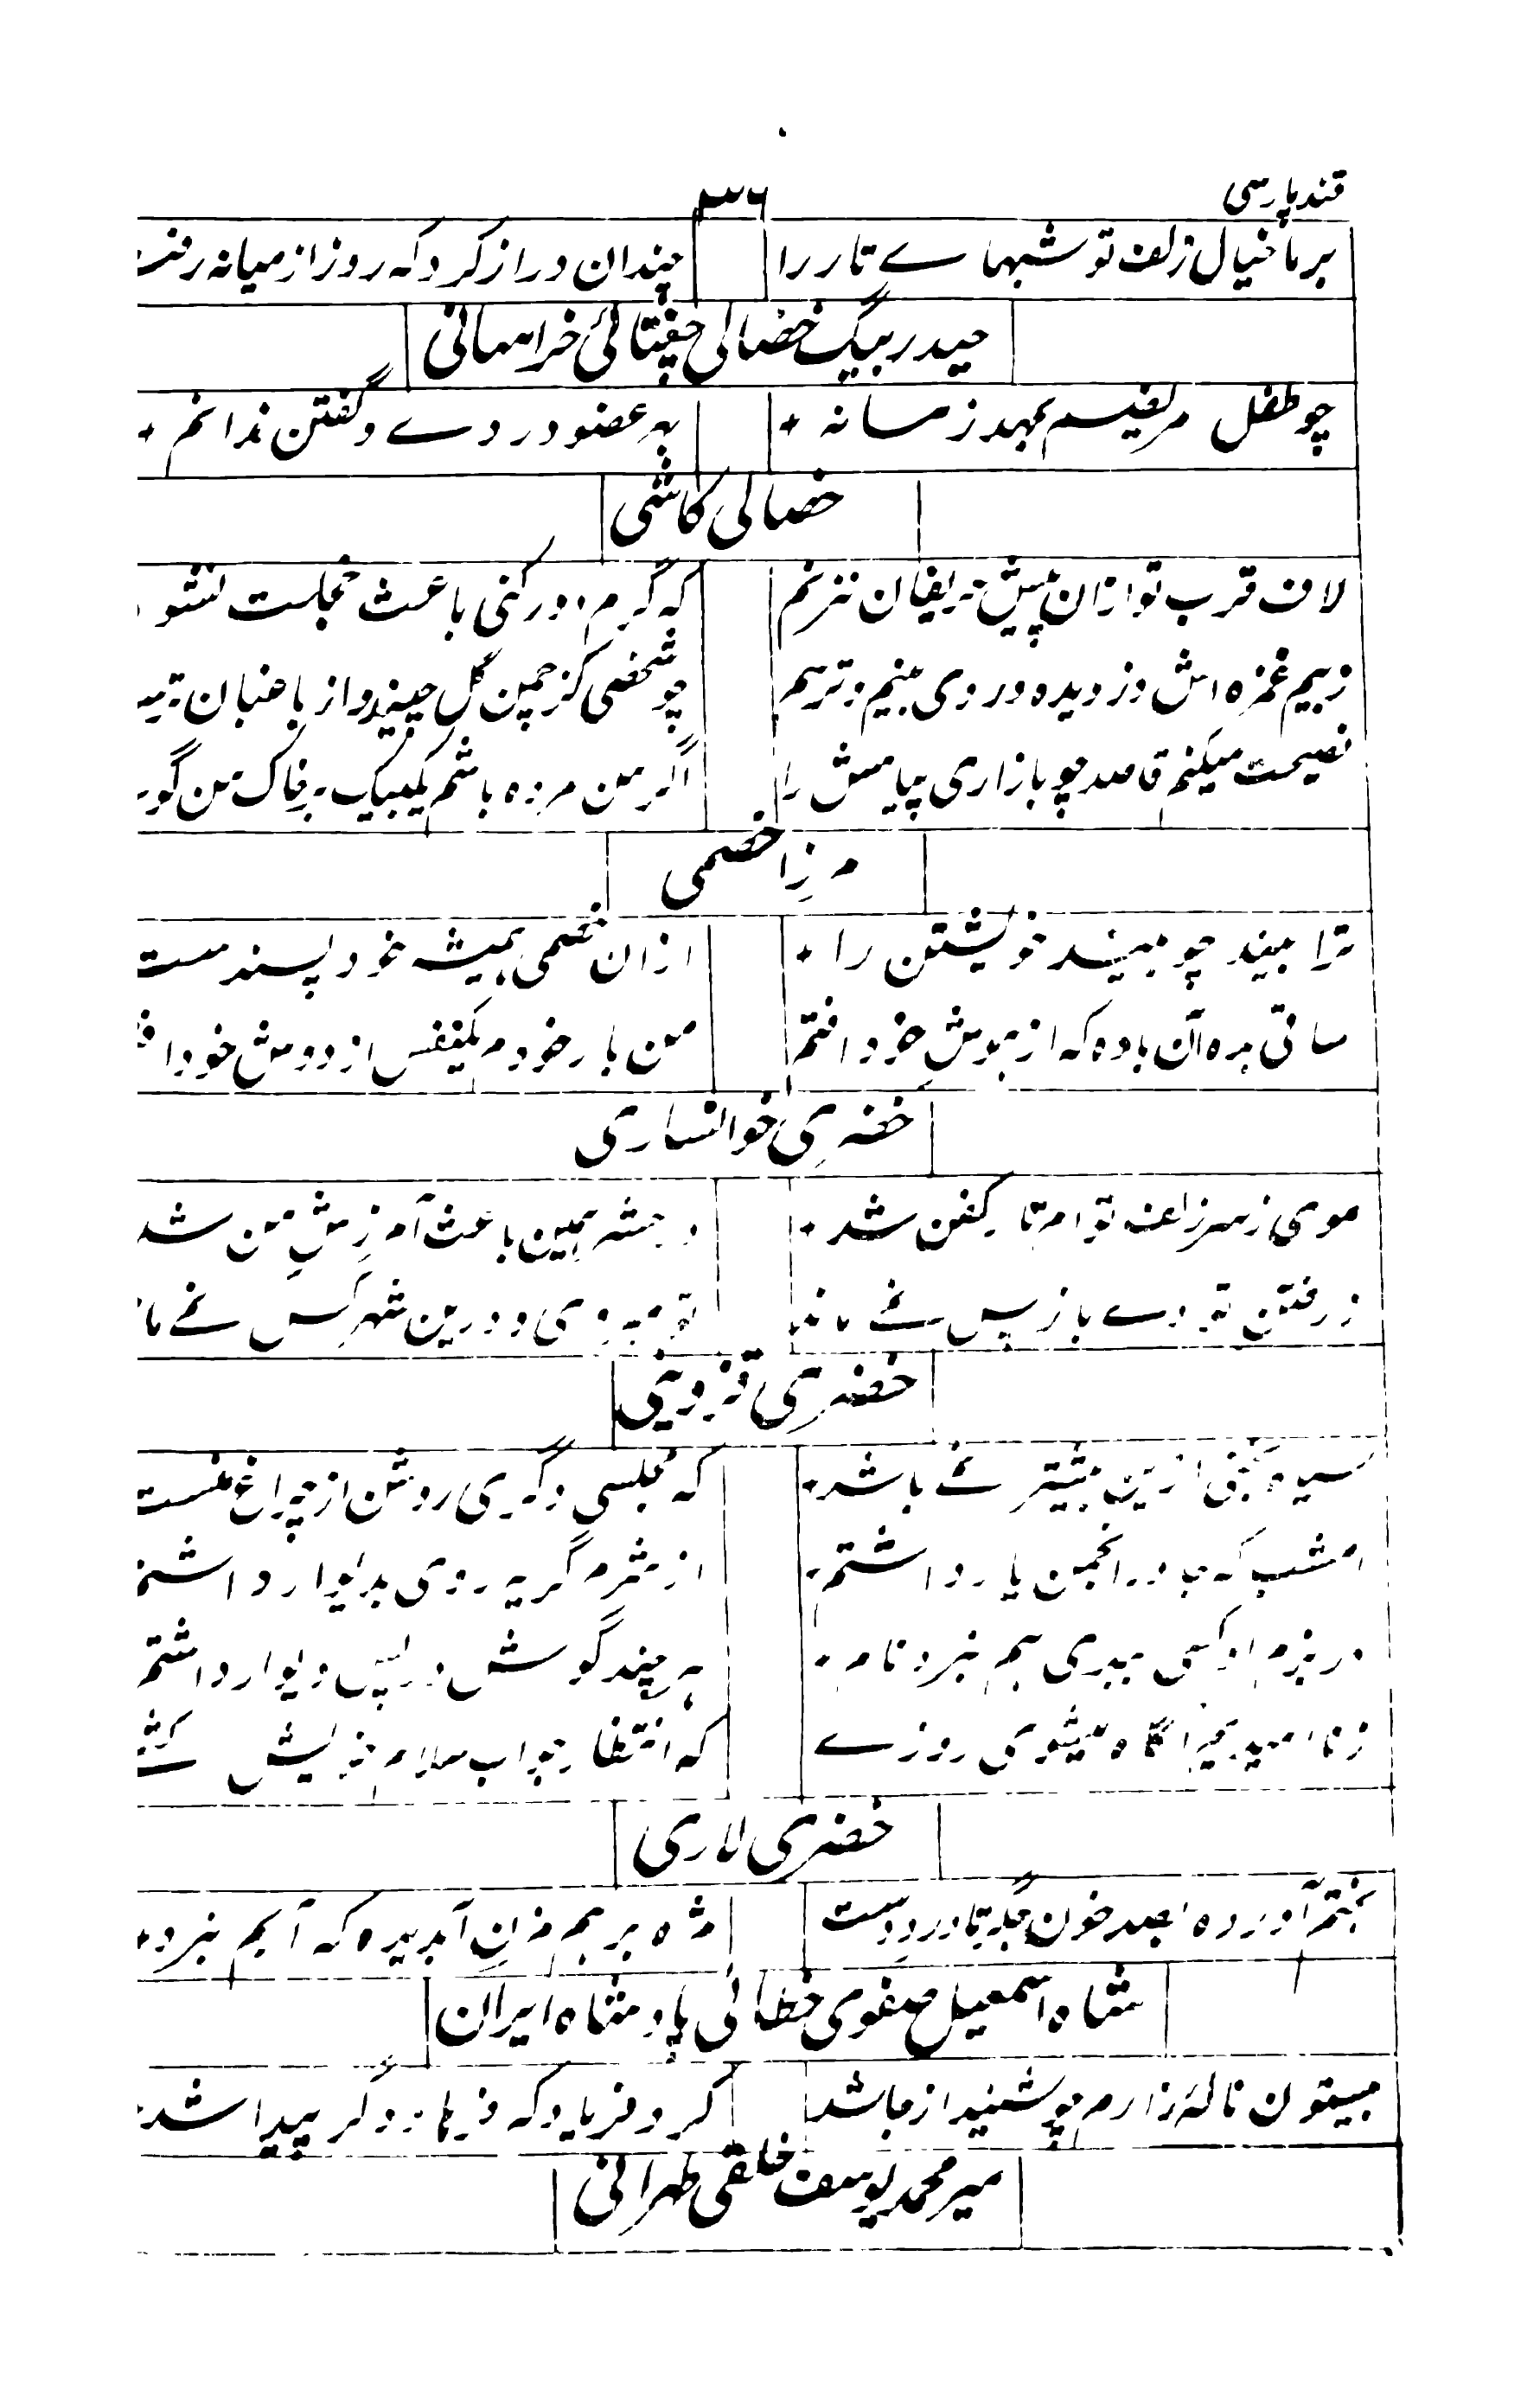 قند پارسی
۳۶
بر ما خیال زلف تو شبهاے تار را چندان دراز کرد که روز از میانه رفت
حیدر بیگ خصالی چغتائی خراسانی
چو طفل مریضم بمهد زمانه + بہر عضو دردے و گفتن ندانم +
خصالی کاشی
لاف قرب تو ازان پیش حریفان نزنم که گرم دور کنی باعث خجلت نشود
ز بیم غمزه اش دزدیده در وی بینم و ترسم چو شخصی کز چمن گل چیند و از باغبان ترسد
نصیحت میکنم قاصد چو باز آری پیامش را اگر من مرده باشم یک بیک بر خاک من گو
مرزا خصمی
ترا بیند چو بیند خویشتن را + ازان خصمی همیشه خود پسندست
ساقی بده آن باده که از هوش خود افتم من بار خودم یکنفس از دوش خود افتم
خضری خوانساری
موی ز سر زلف توام تار کفن شد + در حشر همین باعث آمرزش من شد
ز رفتن تو دمے باز پس نمے ماند تو میروی و درین شهر کس نمے ماند
خضری قزوینی
سیاه بختی ازین بیشتر نمے باشد + که مجلسی دگری روشن از چراغ منست
امشب که جا در انجمن یار داشتم + از شرم گریه روی بدیوار داشتم
در بزم او کسی ببدی هم نبرد نامم + هر چند گوش در پس دیوار داشتم
ز ناامیدیم آگاه میشوی روزے که انتظار جواب سلام خویش کشے
خضری لاری
بختم آورده بصد خون جگر تا در دوست مژه بر هم مزن ای دیده که آبم نبرد +
شاه اسمعیل صفوی خطائی پادشاه ایران
بیستون نالهٔ زارم چو شنید از جا شد کرد فریاد که فرهاد دگر پیدا شد
میر محمد یوسف خلقی طهرانی